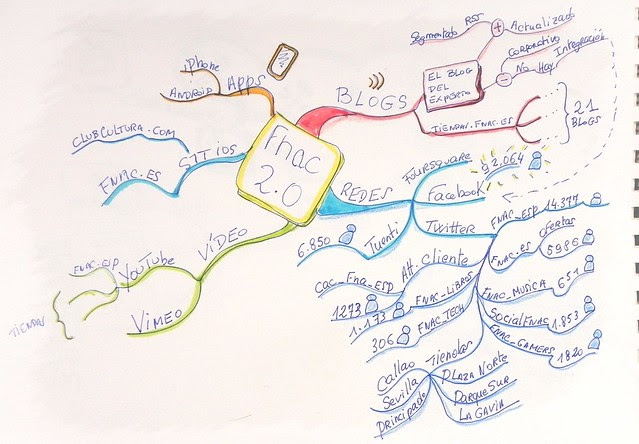 Fnac
2.0
Apps
iPhone
ANDROID
SITIOS
CLUBCULTURA.COM
FNAC.ES
VÍDEO
YOUTUBE
FNAC.ESP
TIENDAS
VIMEO
BLOGS
EL BLOG
DEL
EXPERTO
+
Actualizado
RSS
Segmentado
-
CORPORATIVO
No Hay Integración
TIENDAS.FNAC.ES
21
BLOGS
REDES
FOURSQUARE
Facebook
92.064
Tuenti
6.850
TWITTER
FNAC_ESP 14.377
FNAC_ES ofertas
5986
FNAC_MUSICA 651
SocialFNAC 1.853
FNAC_GAMERS 1820
Att. Cliente
CaC_Fna_ESP
1273
FNAC_LIBROS
1.173
FNAC_TECH
306
Tiendas
Callao
Sevilla
Principado
PLAZA NORTE
Parque SUR
LA GAVIA